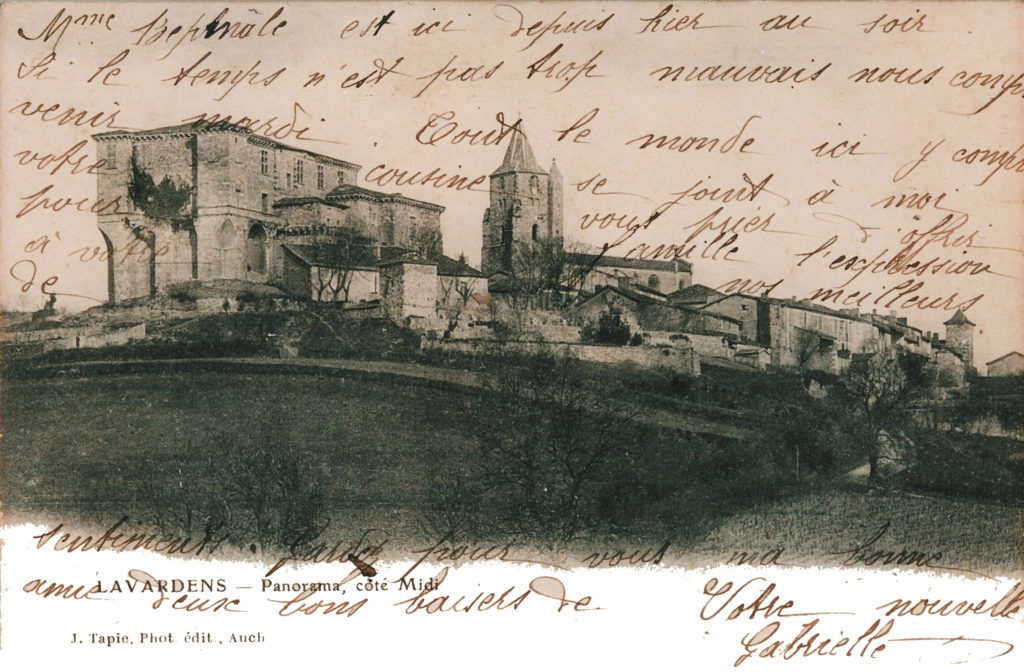 Mme est ici depuis hier au soir
Si le temps n'est pas trop mauvais nous comp
venir mardi Tout le monde ici y comp
votre cousine se joint à moi
pour vous prier d'offrir
à votre famille l'expression
de nos meilleurs
sentiments Gardez pour vous ma bonne
amie deux bons baisers de Votre nouvelle
Gabrielle
LAVARDENS — Panorama, côté Midi
J. Tapie, Phot. édit., Auch